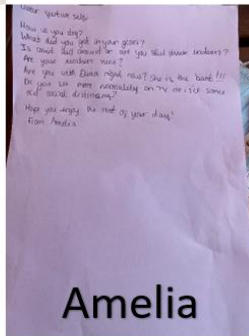 Dear future self,
How is you day?
What did you get in your
Is covid still around or are you still inside
Are your teachers nice?
Are you with right now? She is the best!!!
Do you see more on TV or is it same
old social distancing?
Hope you enjoy the rest of your day!
From Amelia
Amelia